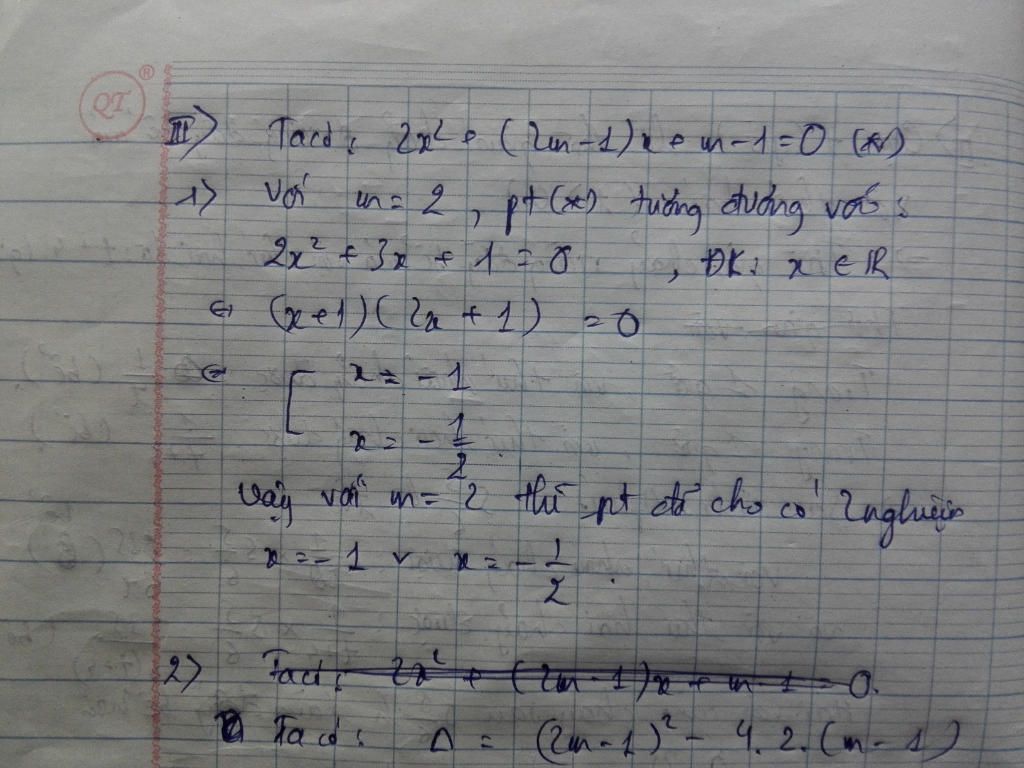 QT ®
III> Ta có: 2x² + (2m-1)x + m-1 = 0 (*)
1> Với m = 2, pt (*) tương đương với:
2x² + 3x + 1 = 0, ĐK: x ∈ ℝ
⇔ (x+1)(2x + 1) = 0
⇔ [ x = -1
x = -1/2
Vậy với m = 2 thì pt đã cho có 2 nghiệm
x = -1 v x = -1/2.
2> Ta có: 2x² + (2m-1)x + m-1 = 0.
Ta có: Δ = (2m-1)² - 4.2.(m-1)